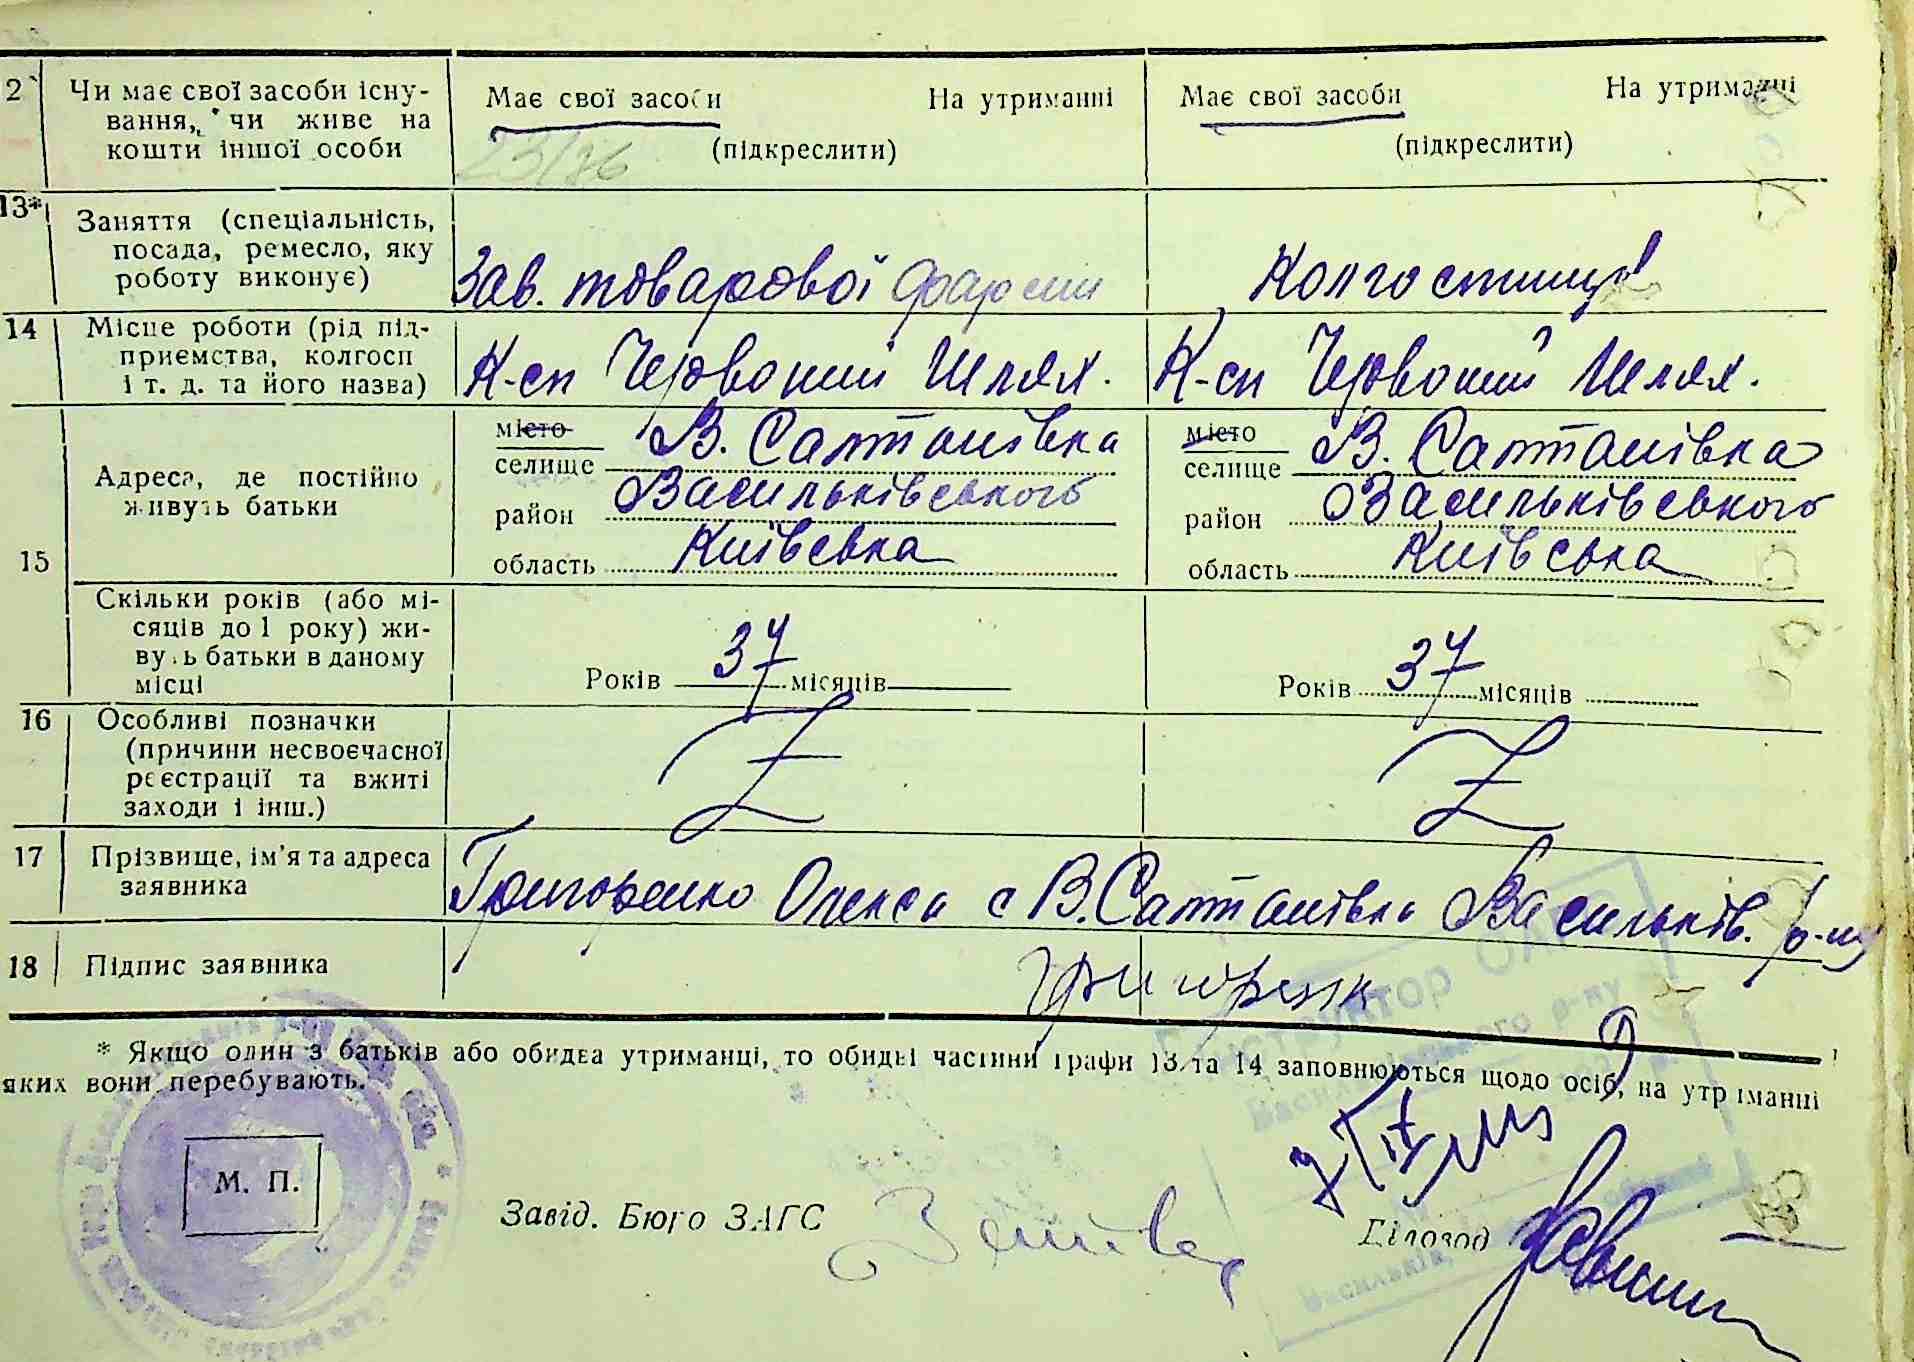 2 Чи має свої засоби існу-
вання, чи живе на
кошти іншої особи
Має свої засоби На утриманні
(підкреслити)
23/76
Має свої засоби На утриманні
(підкреслити)
13* Заняття (спеціальність,
посада, ремесло, яку
роботу виконує)
Зав. товарової ферми
Колгоспниця
14 Місце роботи (рід під-
приємства, колгосп
і т. д. та його назва)
К-сп Червоний Шлях.
К-сп Червоний Шлях.
15 Адреса, де постійно
живуть батьки
місто
селище В. Салтанівка
район Васильківського
область Київська
місто
селище В. Салтанівка
район Васильківського
область Київська
Скільки років (або мі-
сяців до 1 року) жи-
вуть батьки в даному
місці
Років 37 місяців
Років 37 місяців
16 Особливі позначки
(причини несвоєчасної
реєстрації та вжиті
заходи і інш.)
Z
Z
17 Прізвище, ім'я та адреса
заявника
Григоренко Олекса с В. Салтанівка Васильків. р-ну
18 Підпис заявника
* Якщо один з батьків або обидва утриманці, то обидві частини графи 13 та 14 заповнюються щодо осіб, на утриманні
яких вони перебувають.
М. П.
Завід. Бюро ЗАГС
Діловод